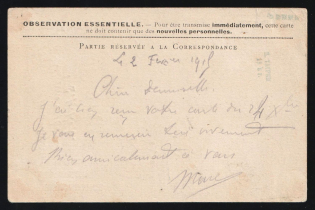 OBSERVATION ESSENTIELLE. — Pour être transmise immédiatement, cette carte
ne doit contenir que des nouvelles personnelles.
PARTIE RÉSERVÉE A LA CORRESPONDANCE
Le 2
Chère
J'ai bien reçu votre carte du 24 Xbre
Je vous en remercie
Bien amicalement à vous